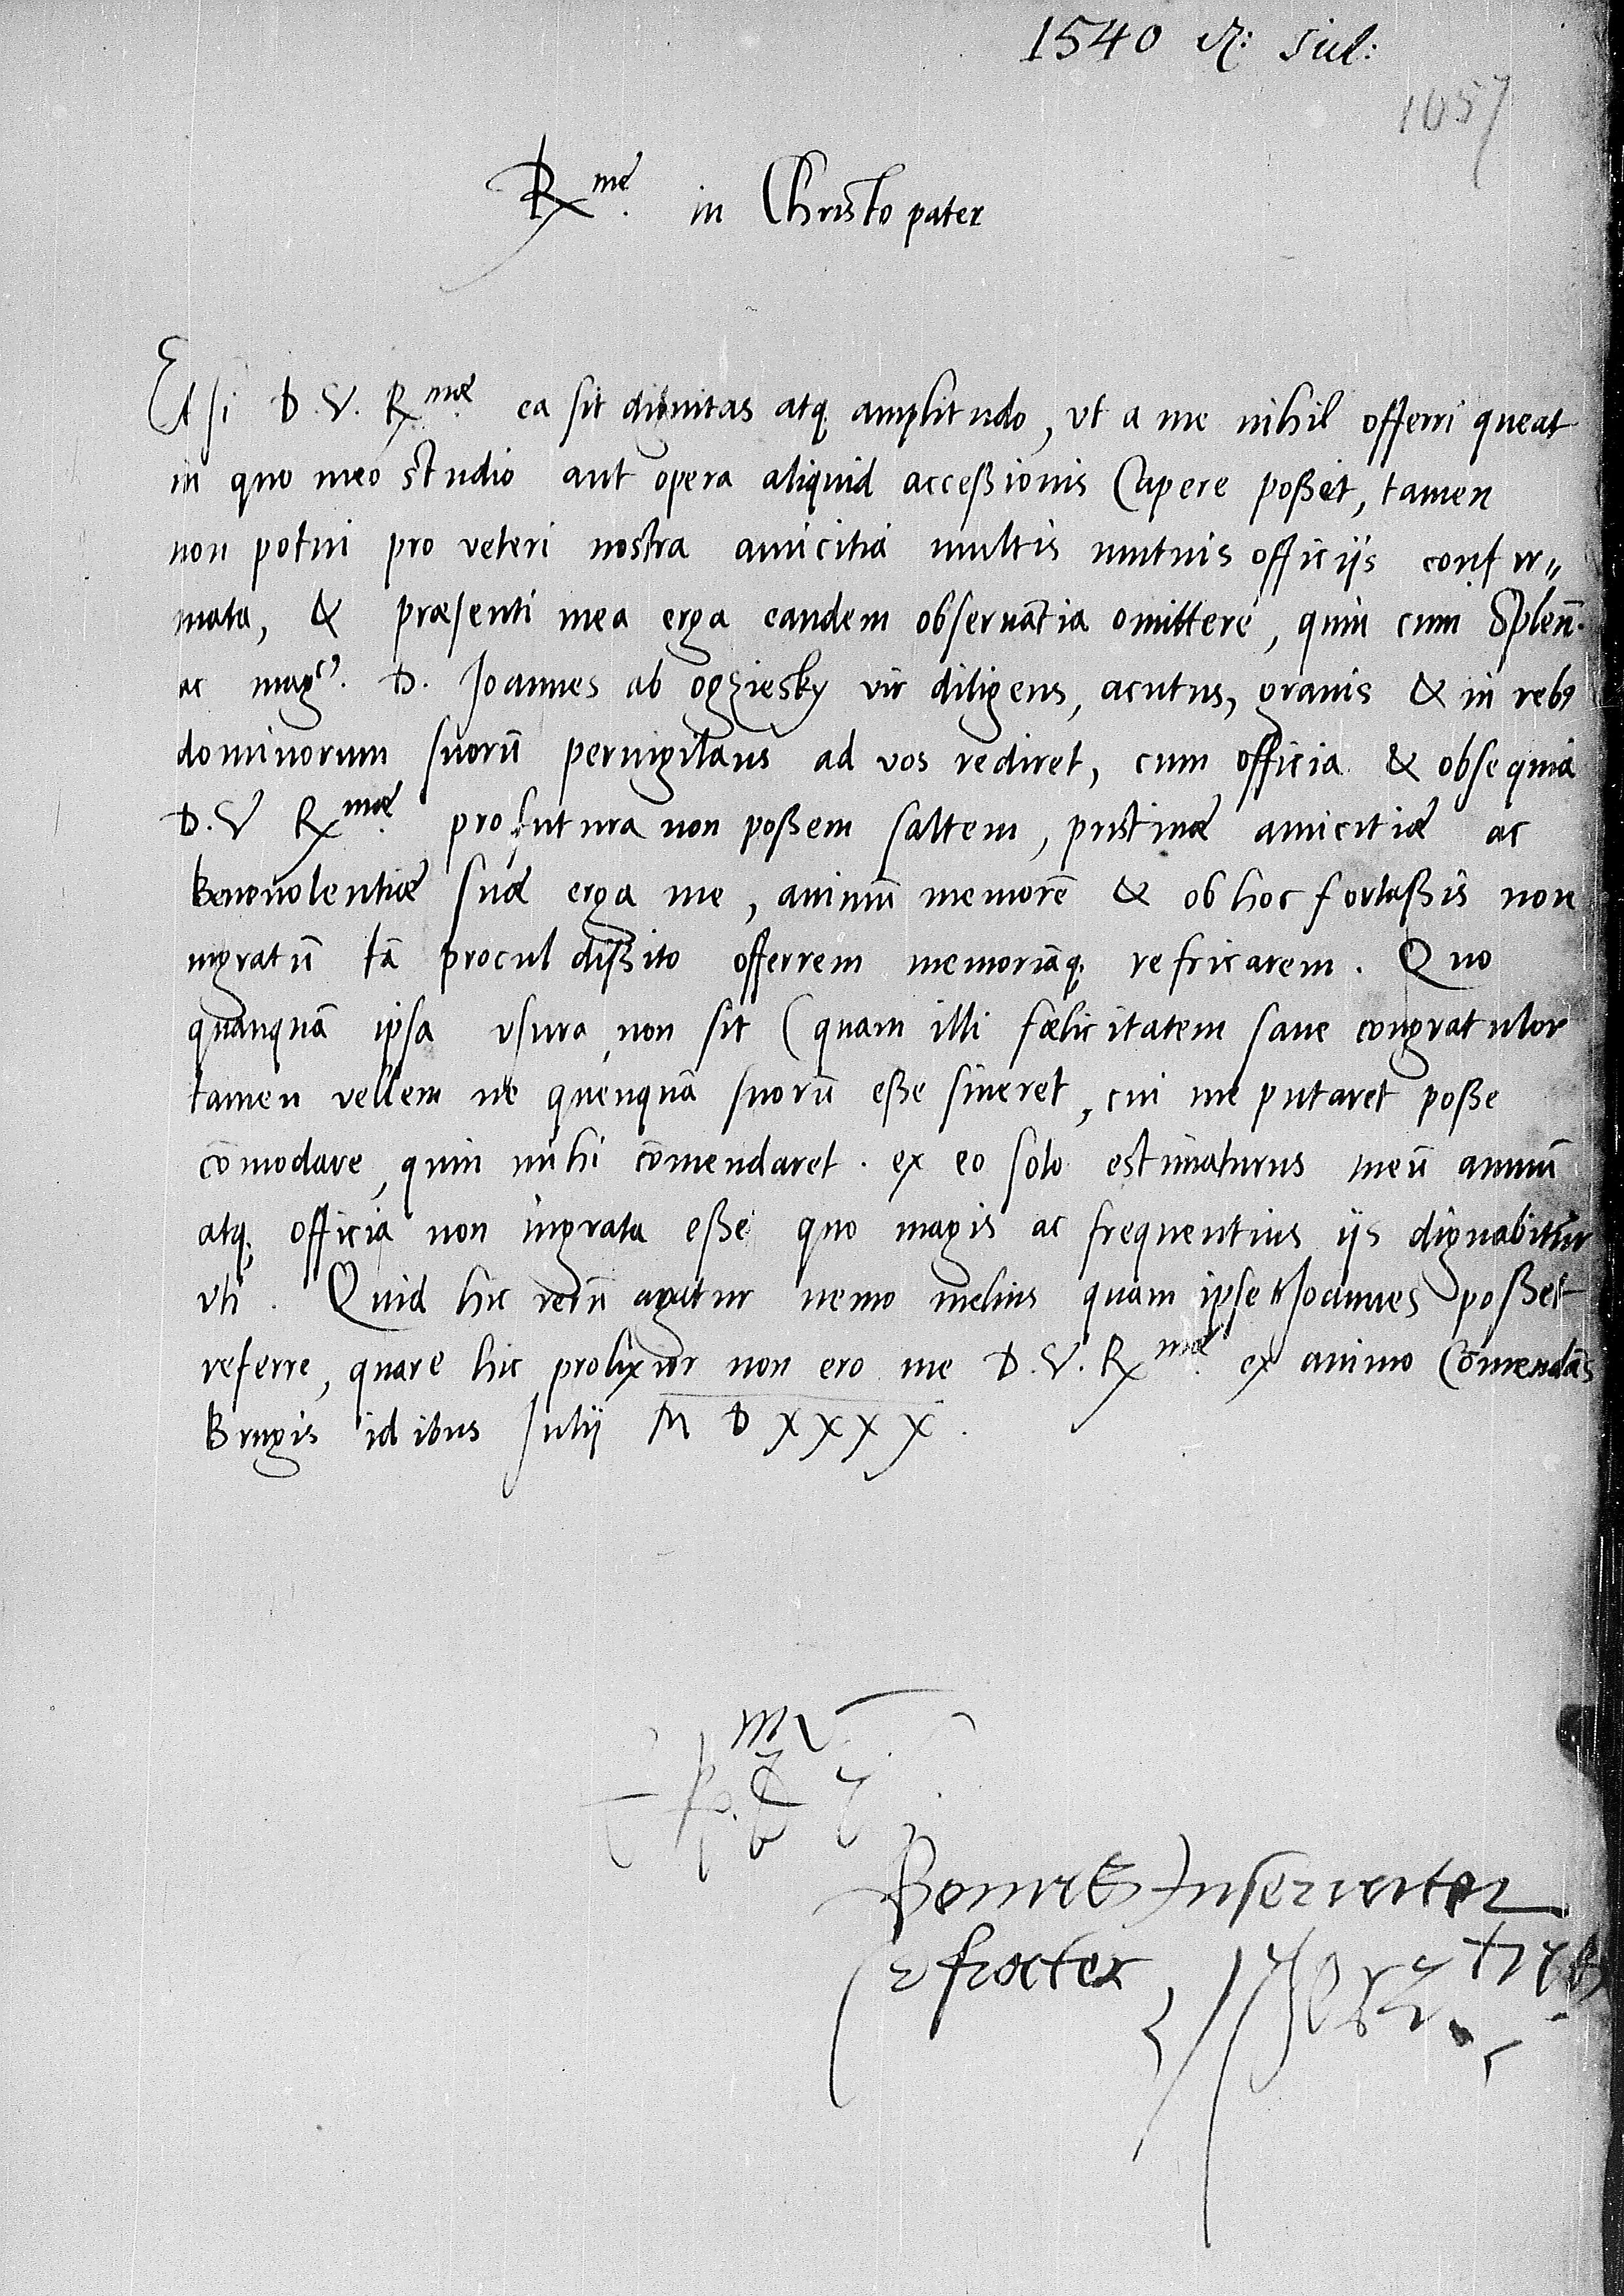 1540 Jul:
1057
Rme. in Christo pater
Etsi D. V. Rmæ. ea sit dignitas atq amplitudo, vt a me nihil offerri queat
in quo meo studio aut opera aliquid acceßionis Capere poßet, tamen
non potui pro veteri nostra amicitia multis mutuis officijs confir„
mata, & præsenti mea erga eandem obseruātia omittere, quin cum Splen̄.
ac magcus. D. Joannes ab ogziesky vir diligens, acutus, grauis & in reb9
dominorum suorū peruigilans ad vos rediret, cum officia & obsequia
D. V Rmæ. profutura non poßem saltem, pristinæ amicitiæ ac
Beneuolentiæ suæ erga me, animū memorē & ob hoc fortaßis non
ingratū tā procul dißito offerrem memoriāq; refricarem. Quo
quanquā ipsa vsura non sit (quam illi fœlicitatem sane congratulor
tamen vellem ne quenquā suorū eße sineret, cui me putaret poße
cōmodare, quin mihi cōmendaret. ex eo solo estimaturus meū animū
atq; officia non ingrata eße quo magis ac frequentius ijs dignabitur
vti. Quid hic rerū agitur nemo melius quam ipse Joannes poßet
referre, quare hic prolixior non ero me D. V. Rmæ. ex animo Cōmendās
Brugis idibus Julij M D X X X X.
Inseruitor
frater